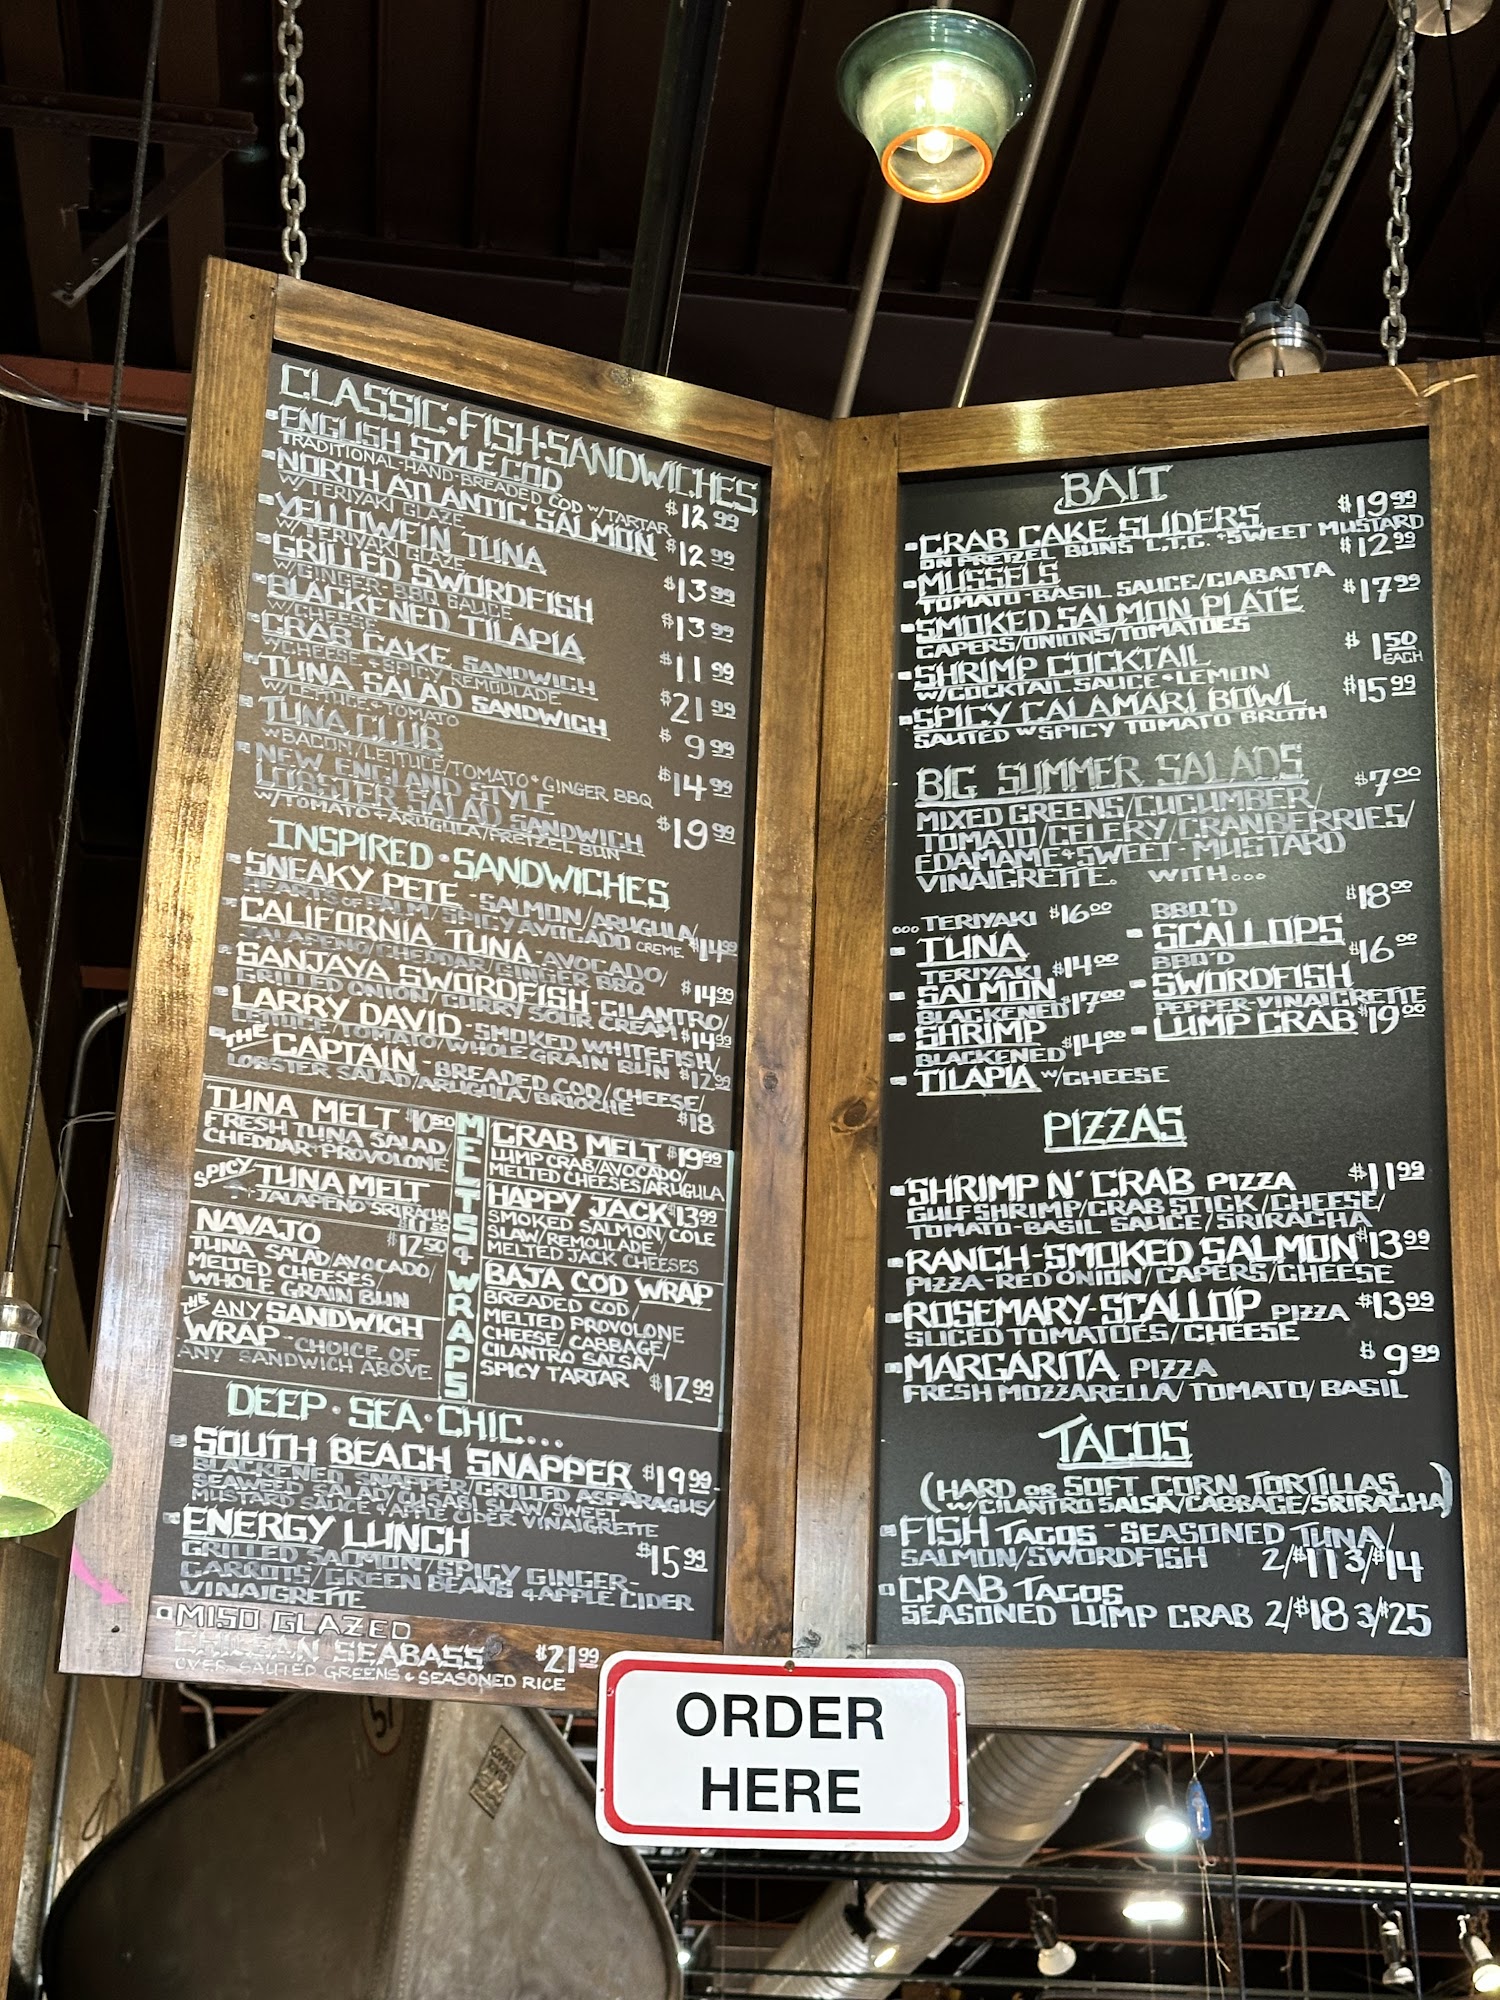 CLASSIC·FISH·SANDWICHES
ENGLISH STYLE COD
TRADITIONAL-HAND-BREADED COD W/TARTAR $12.99
NORTH ATLANTIC SALMON
W/TERIYAKI GLAZE $12.99
YELLOWFIN TUNA
W/TERIYAKI GLAZE $13.99
GRILLED SWORDFISH
W/GINGER-BBQ SAUCE $13.99
BLACKENED TILAPIA
W/CHEESE $11.99
CRAB CAKE SANDWICH
W/CHEESE + SPICY REMOULADE $21.99
TUNA SALAD SANDWICH
W/LETTUCE + TOMATO $9.99
TUNA CLUB
W BACON/LETTUCE/TOMATO + GINGER BBQ $14.99
NEW ENGLAND STYLE
LOBSTER SALAD SANDWICH $19.99
W/TOMATO + ARUGULA/PRETZEL BUN
INSPIRED·SANDWICHES
SNEAKY PETE - SALMON/ARUGULA/
HEARTS OF PALM/SPICY AVOCADO CREME $14.99
CALIFORNIA TUNA - AVOCADO/
JALAPENO/CHEDDAR/GINGER BBQ $14.99
SANJAYA SWORDFISH - CILANTRO/
GRILLED ONION/CURRY SOUR CREAM $14.99
LARRY DAVID - SMOKED WHITEFISH/
LETTUCE/TOMATO/WHOLE GRAIN BUN $12.99
THE CAPTAIN - BREADED COD/CHEESE/
LOBSTER SALAD/ARUGULA/BRIOCHE $18
MELTS + WRAPS
TUNA MELT $10.50
FRESH TUNA SALAD/
CHEDDAR + PROVOLONE
SPICY TUNA MELT
+ JALAPENO SRIRACHA $11.50
NAVAJO $12.50
TUNA SALAD/AVOCADO/
MELTED CHEESES/
WHOLE GRAIN BUN
THE ANY SANDWICH
WRAP - CHOICE OF
ANY SANDWICH ABOVE
CRAB MELT $19.99
LUMP CRAB/AVOCADO/
MELTED CHEESES/ARUGULA
HAPPY JACK $13.99
SMOKED SALMON/COLE
SLAW/REMOULADE/
MELTED JACK CHEESES
BAJA COD WRAP
BREADED COD/
MELTED PROVOLONE
CHEESE/CABBAGE/
CILANTRO SALSA/
SPICY TARTAR $12.99
DEEP·SEA·CHIC...
SOUTH BEACH SNAPPER $19.99
BLACKENED SNAPPER/GRILLED ASPARAGUS/
SEAWEED SALAD/CUSABI SLAW/SWEET
MUSTARD SAUCE + APPLE CIDER VINAIGRETTE
ENERGY LUNCH $15.99
GRILLED SALMON/SPICY GINGER-
CARROTS/GREEN BEANS + APPLE CIDER
VINAIGRETTE
MISO GLAZED
CHILEAN SEABASS $21.99
OVER SAUTED GREENS & SEASONED RICE
BAIT
CRAB CAKE SLIDERS $19.99
ON PRETZEL BUNS L.T.C. + SWEET MUSTARD
MUSSELS $12.99
TOMATO-BASIL SAUCE/CIABATTA
SMOKED SALMON PLATE $17.99
CAPERS/ONIONS/TOMATOES
SHRIMP COCKTAIL $1.50 EACH
W/COCKTAIL SAUCE + LEMON
SPICY CALAMARI BOWL $15.99
SAUTED W SPICY TOMATO BROTH
BIG SUMMER SALADS $7.00
MIXED GREENS/CUCUMBER/
TOMATO/CELERY/CRANBERRIES/
EDAMAME + SWEET-MUSTARD
VINAIGRETTE. WITH...
... TERIYAKI $16.00
TUNA
TERIYAKI $14.00
SALMON
BLACKENED $17.00
SHRIMP
BLACKENED $14.00
TILAPIA W/CHEESE
BBQ'D $18.00
SCALLOPS
BBQ'D $16.00
SWORDFISH
PEPPER-VINAIGRETTE
LUMP CRAB $19.00
PIZZAS
SHRIMP N' CRAB PIZZA $11.99
GULF SHRIMP/CRAB STICK/CHEESE/
TOMATO-BASIL SAUCE/SRIRACHA
RANCH-SMOKED SALMON $13.99
PIZZA-RED ONION/CAPERS/CHEESE
ROSEMARY-SCALLOP PIZZA $13.99
SLICED TOMATOES/CHEESE
MARGARITA PIZZA $9.99
FRESH MOZZARELLA/TOMATO/BASIL
TACOS
(HARD OR SOFT CORN TORTILLAS
W/CILANTRO SALSA/CABBAGE/SRIRACHA)
FISH TACOS - SEASONED TUNA/
SALMON/SWORDFISH 2/$11 3/$14
CRAB TACOS
SEASONED LUMP CRAB 2/$18 3/$25
ORDER
HERE